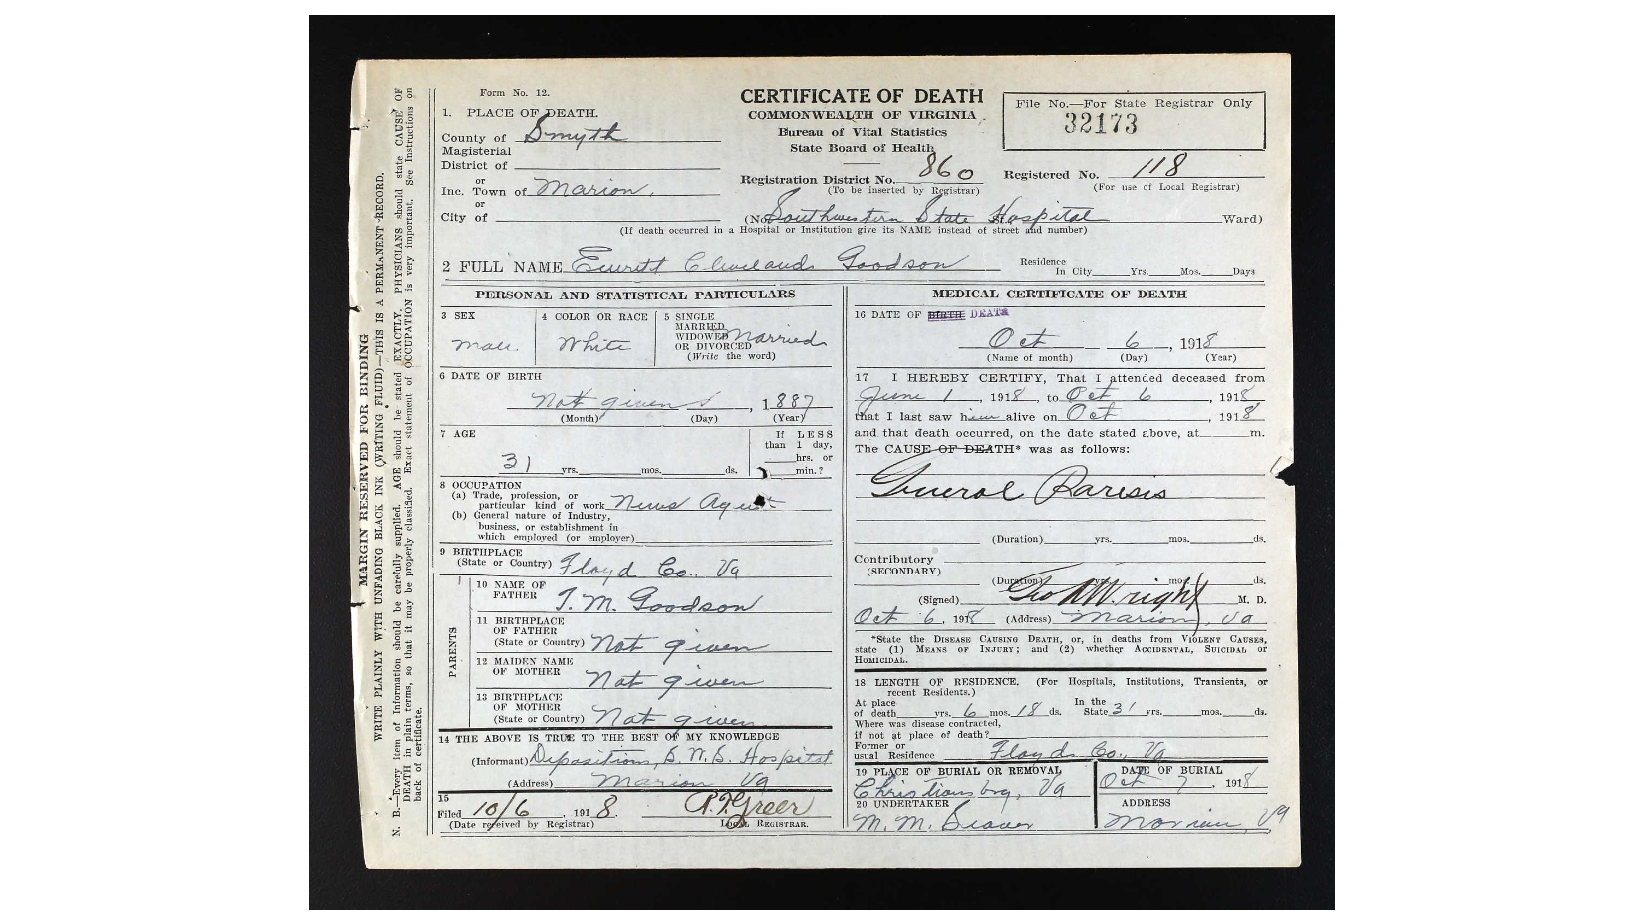 MARGIN RESERVED FOR BINDING
WRITE PLAINLY WITH UNFADING BLACK INK (WRITING FLUID)—THIS IS A PERMANENT RECORD.
N. B.—Every item of Information should be carefully supplied. AGE should be stated EXACTLY. PHYSICIANS should state CAUSE OF
DEATH in plain terms, so that it may be properly classified. Exact statement of OCCUPATION is very important. See Instructions on
back of certificate.
Form No. 12.
CERTIFICATE OF DEATH
COMMONWEALTH OF VIRGINIA
Bureau of Vital Statistics
State Board of Health
File No.—For State Registrar Only
32173
1. PLACE OF DEATH.
County of Smyth
Magisterial
District of
or
Inc. Town of Marion,
or
City of
Registration District No. 860
(To be inserted by Registrar)
Registered No. 118
(For use of Local Registrar)
(No. Southwestern State Hospital St. Ward)
(If death occurred in a Hospital or Institution give its NAME instead of street and number)
2 FULL NAME Everett Cleveland Goodson
Residence
In City Yrs. Mos. Days
PERSONAL AND STATISTICAL PARTICULARS
3 SEX
Male.
4 COLOR OR RACE
White
5 SINGLE
MARRIED
WIDOWED
OR DIVORCED
(Write the word)
Married
6 DATE OF BIRTH
Not given , 1887
(Month) (Day) (Year)
7 AGE
31 yrs. mos. ds.
If LESS
than 1 day,
hrs. or
min.?
8 OCCUPATION
(a) Trade, profession, or
particular kind of work News Agent
(b) General nature of Industry,
business, or establishment in
which employed (or employer)
9 BIRTHPLACE
(State or Country) Floyd Co., Va
PARENTS
10 NAME OF
FATHER T. M. Goodson
11 BIRTHPLACE
OF FATHER
(State or Country) Not given
12 MAIDEN NAME
OF MOTHER Not given
13 BIRTHPLACE
OF MOTHER
(State or Country) Not given
14 THE ABOVE IS TRUE TO THE BEST OF MY KNOWLEDGE
(Informant) Depositions, S. W. S. Hospital
(Address) Marion Va
15
Filed 10/6, 1918. Greer
(Date received by Registrar) LOCAL REGISTRAR.
MEDICAL CERTIFICATE OF DEATH
16 DATE OF BIRTH DEATH
Oct 6, 1918
(Name of month) (Day) (Year)
17 I HEREBY CERTIFY, That I attended deceased from
June 1, 1918, to Oct 6, 1918
that I last saw him alive on Oct, 1918
and that death occurred, on the date stated above, at m.
The CAUSE OF DEATH* was as follows:
General Paresis
(Duration) yrs. mos. ds.
Contributory
(SECONDARY)
(Duration) yrs. mos. ds.
(Signed) Geo A Wright M. D.
Oct 6, 1918 (Address) Marion, Va
*State the DISEASE CAUSING DEATH, or, in deaths from VIOLENT CAUSES,
state (1) MEANS OF INJURY; and (2) whether ACCIDENTAL, SUICIDAL or
HOMICIDAL.
18 LENGTH OF RESIDENCE. (For Hospitals, Institutions, Transients, or
recent Residents.)
At place
of death yrs. 6 mos. 18 ds.
In the
State 31 yrs. mos. ds.
Where was disease contracted,
if not at place of death?
Former or
usual Residence Floyd Co., Va
19 PLACE OF BURIAL OR REMOVAL
Christiansburg, Va
DATE OF BURIAL
Oct 7, 1918
20 UNDERTAKER
M. M. Seaver
ADDRESS
Marion, Va